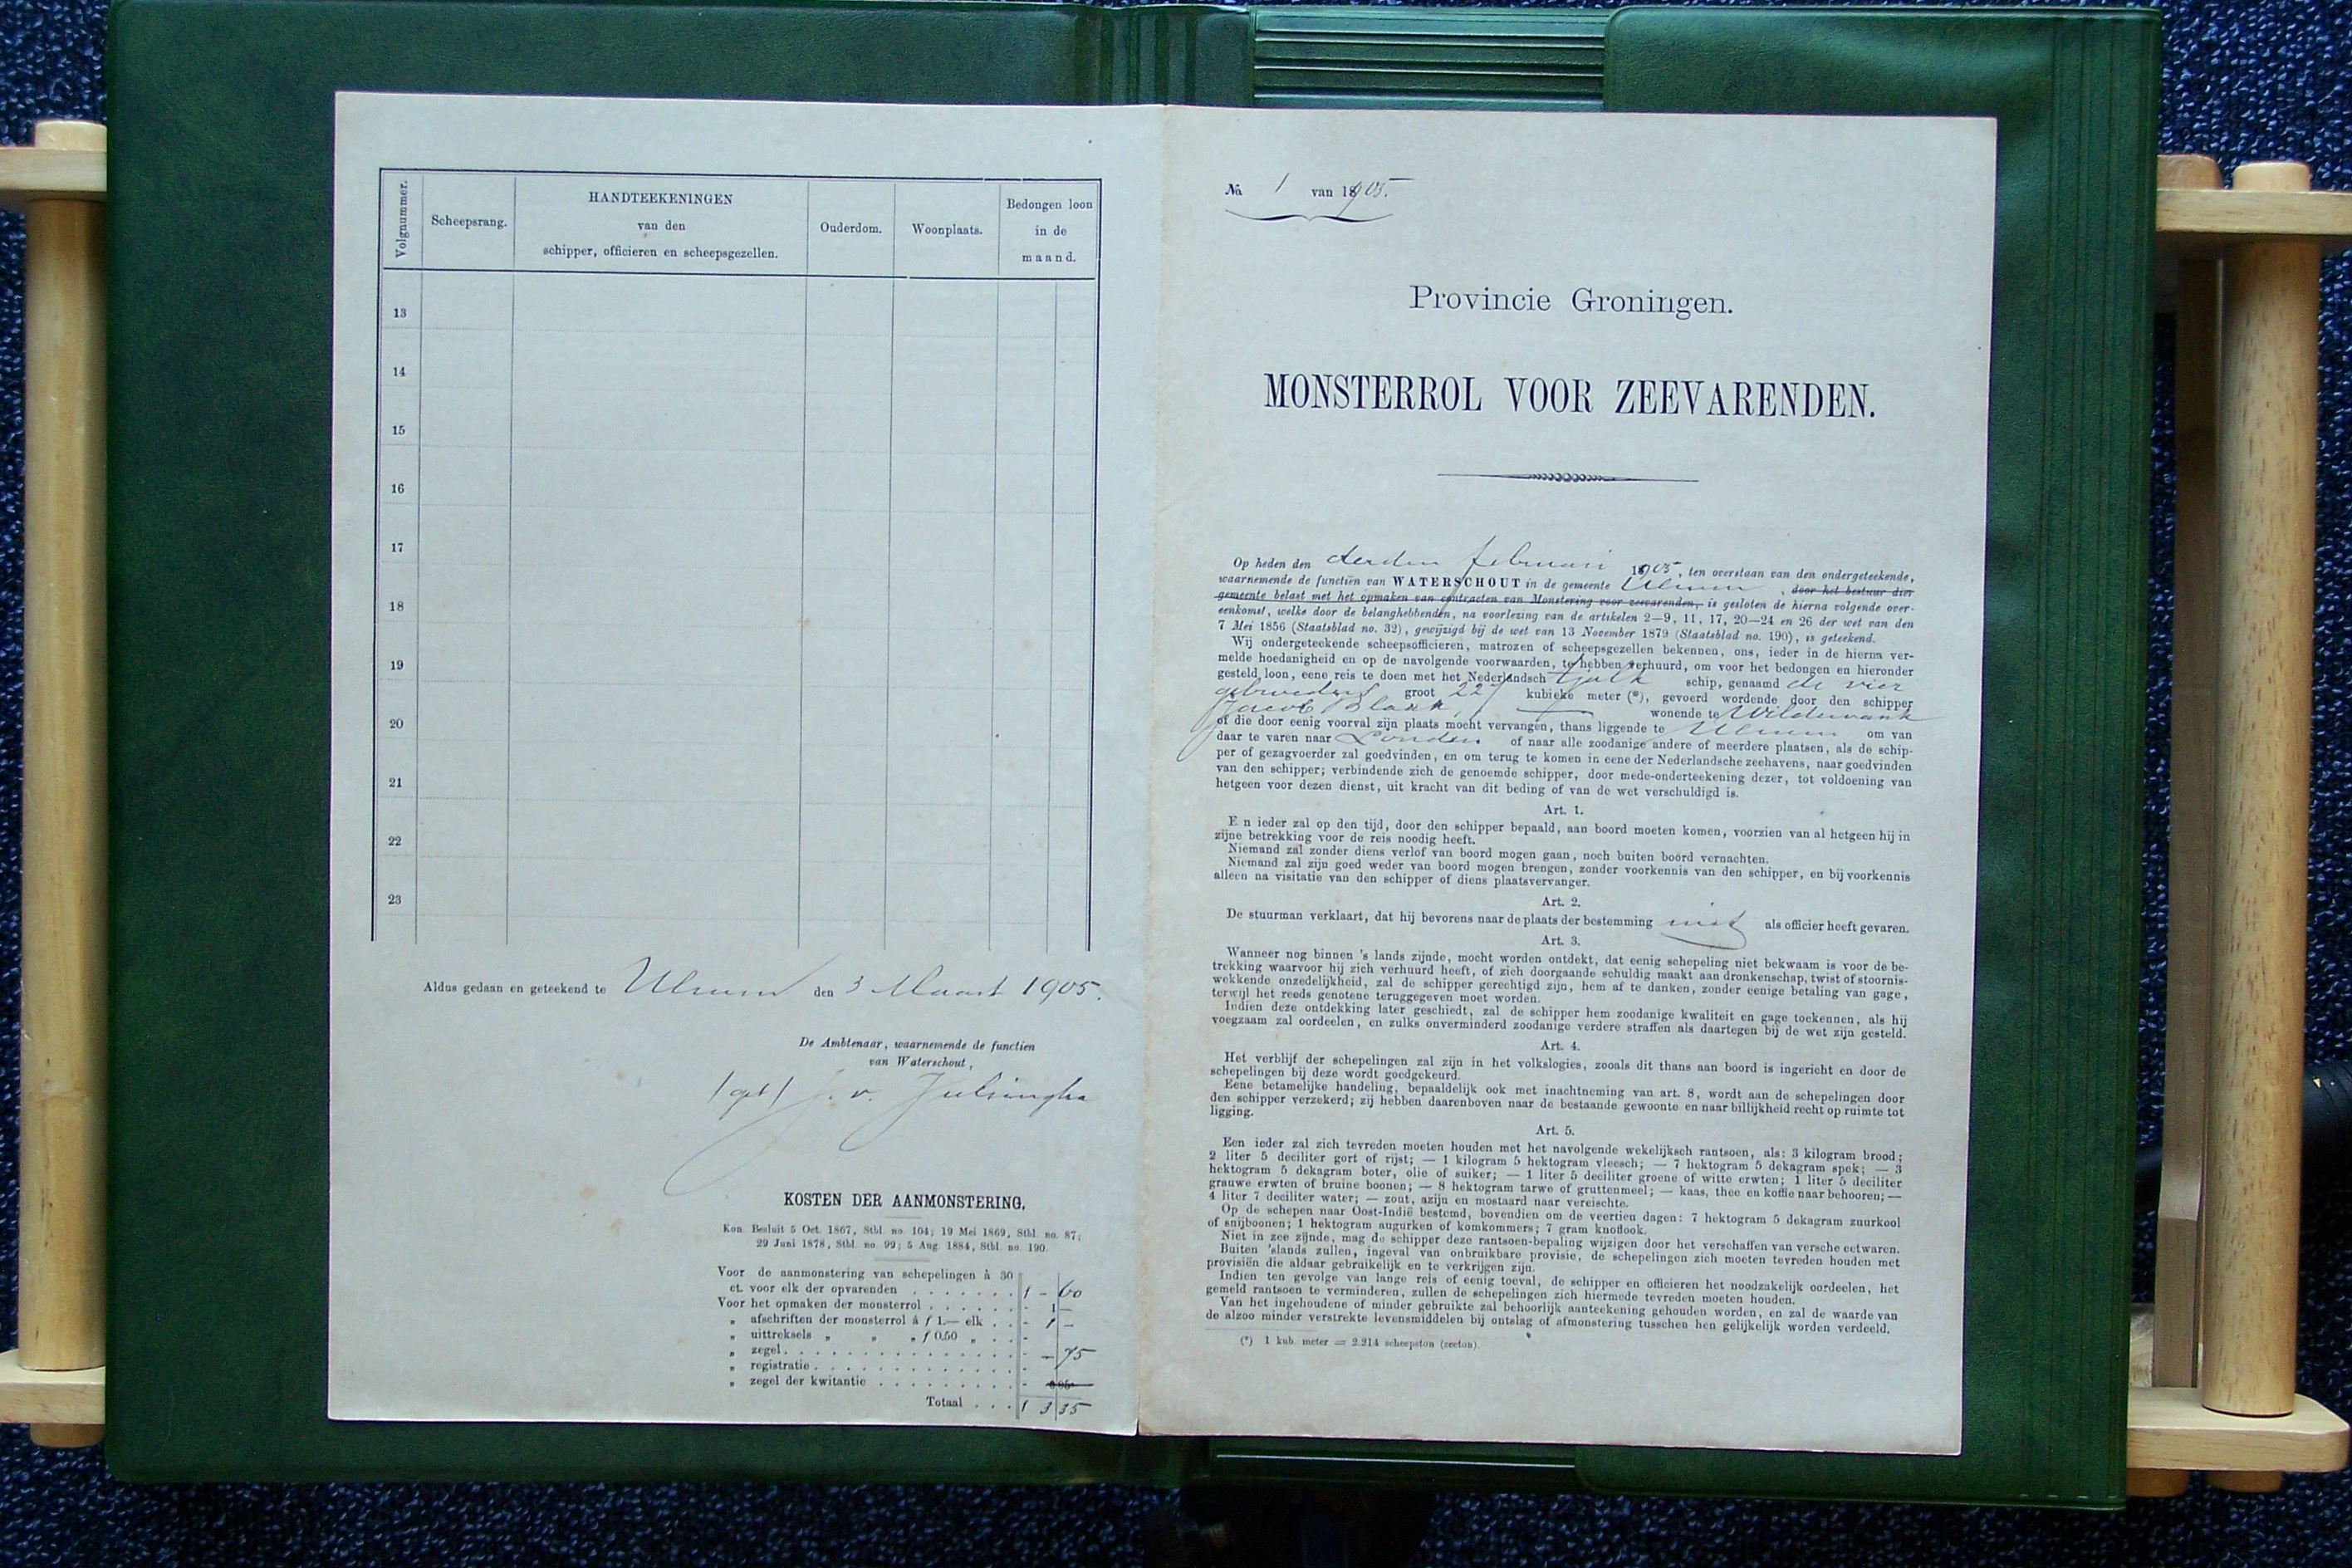 Volgnummer.
Scheepsrang.
HANDTEEKENINGEN
van den
schipper, officieren en scheepsgezellen.
Ouderdom.
Woonplaats.
Bedongen loon
in de
maand.
13
14
15
16
17
18
19
20
21
22
23
Aldus gedaan en geteekend te Ulrum den 3 Maart 1905.
De Ambtenaar, waarnemende de functien
van Waterschout,
/get/ J. v. Julsingha
KOSTEN DER AANMONSTERING,
Kon. Besluit 5 Oct. 1867, Stbl. no. 104; 19 Mei 1869, Stbl. no. 87;
29 Juni 1878, Stbl. no. 99; 5 Aug. 1884, Stbl. no. 190.
Voor de aanmonstering van schepelingen à 30
ct. voor elk der opvarenden . . . . . . . f - 60
Voor het opmaken der monsterrol . . . . . . - 1 —
„ afschriften der monsterrol à f 1.— elk . . - 1 —
„ uittreksels „ „ „ f 0.50 „ . . -
„ zegel . . . . . . . . . . . . . . . . - — 75
„ registratie . . . . . . . . . . . . . -
„ zegel der kwitantie . . . . . . . . . . - 0 05
Totaal . . . f 3 35
No. 1 van 1905.
Provincie Groningen.
MONSTERROL VOOR ZEEVARENDEN.
Op heden den derden februari 1905, ten overstaan van den ondergeteekende,
waarnemende de functiën van WATERSCHOUT in de gemeente Ulrum, door het bestuur dier
gemeente belast met het opmaken van contracten van Monstering voor zeevarenden, is gesloten de hierna volgende over-
eenkomst, welke door de belanghebbenden, na voorlezing van de artikelen 2—9, 11, 17, 20—24 en 26 der wet van den
7 Mei 1856 (Staatsblad no. 32), gewijzigd bij de wet van 13 November 1879 (Staatsblad no. 190), is geteekend.
Wij ondergeteekende scheepsofficieren, matrozen of scheepsgezellen bekennen, ons, ieder in de hierna ver-
melde hoedanigheid en op de navolgende voorwaarden, te hebben verhuurd, om voor het bedongen en hieronder
gesteld loon, eene reis te doen met het Nederlandsch tjalk schip, genaamd de vier
gebroeders groot 227 kubieke meter (*), gevoerd wordende door den schipper
Jacob Blaak, wonende te Wildervank
of die door eenig voorval zijn plaats mocht vervangen, thans liggende te Ulrum om van
daar te varen naar Londen of naar alle zoodanige andere of meerdere plaatsen, als de schip-
per of gezagvoerder zal goedvinden, en om terug te komen in eene der Nederlandsche zeehavens, naar goedvinden
van den schipper; verbindende zich de genoemde schipper, door mede-onderteekening dezer, tot voldoening van
hetgeen voor dezen dienst, uit kracht van dit beding of van de wet verschuldigd is.
Art. 1.
E n ieder zal op den tijd, door den schipper bepaald, aan boord moeten komen, voorzien van al hetgeen hij in
zijne betrekking voor de reis noodig heeft.
Niemand zal zonder diens verlof van boord mogen gaan, noch buiten boord vernachten.
Niemand zal zijn goed weder van boord mogen brengen, zonder voorkennis van den schipper, en bij voorkennis
alleen na visitatie van den schipper of diens plaatsvervanger.
Art. 2.
De stuurman verklaart, dat hij bevorens naar de plaats der bestemming niet als officier heeft gevaren.
Art. 3.
Wanneer nog binnen 's lands zijnde, mocht worden ontdekt, dat eenig schepeling niet bekwaam is voor de be-
trekking waarvoor hij zich verhuurd heeft, of zich doorgaande schuldig maakt aan dronkenschap, twist of stoornis-
wekkende onzedelijkheid, zal de schipper gerechtigd zijn, hem af te danken, zonder eenige betaling van gage,
terwijl het reeds genotene teruggegeven moet worden.
Indien deze ontdekking later geschiedt, zal de schipper hem zoodanige kwaliteit en gage toekennen, als hij
voegzaam zal oordeelen, en zulks onverminderd zoodanige verdere straffen als daartegen bij de wet zijn gesteld.
Art. 4.
Het verblijf der schepelingen zal zijn in het volkslogies, zooals dit thans aan boord is ingericht en door de
schepelingen bij deze wordt goedgekeurd.
Eene betamelijke handeling, bepaaldelijk ook met inachtneming van art. 8, wordt aan de schepelingen door
den schipper verzekerd; zij hebben daarenboven naar de bestaande gewoonte en naar billijkheid recht op ruimte tot
ligging.
Art. 5.
Een ieder zal zich tevreden moeten houden met het navolgende wekelijksch rantsoen, als: 3 kilogram brood;
2 liter 5 deciliter gort of rijst; — 1 kilogram 5 hektogram vleesch; — 7 hektogram 5 dekagram spek; — 3
hektogram 5 dekagram boter, olie of suiker; — 1 liter 5 deciliter groene of witte erwten; 1 liter 5 deciliter
grauwe erwten of bruine boonen; — 8 hektogram tarwe of gruttenmeel; — kaas, thee en koffie naar behooren; —
4 liter 7 deciliter water; — zout, azijn en mostaard naar vereischte.
Op de schepen naar Oost-Indië bestemd, bovendien om de veertien dagen: 7 hektogram 5 dekagram zuurkool
of snijboonen; 1 hektogram augurken of komkommers; 7 gram knoflook.
Niet in zee zijnde, mag de schipper deze rantsoen-bepaling wijzigen door het verschaffen van versche eetwaren.
Buiten 'slands zullen, ingeval van onbruikbare provisie, de schepelingen zich moeten tevreden houden met
provisiën die aldaar gebruikelijk en te verkrijgen zijn.
Indien ten gevolge van lange reis of eenig toeval, de schipper en officieren het noodzakelijk oordeelen, het
gemeld rantsoen te verminderen, zullen de schepelingen zich hiermede tevreden moeten houden.
Van het ingehoudene of minder gebruikte zal behoorlijk aanteekening gehouden worden, en zal de waarde van
de alzoo minder verstrekte levensmiddelen bij ontslag of afmonstering tusschen hen gelijkelijk worden verdeeld.
(*) 1 kub. meter = 2.214 scheepston (zeeton).